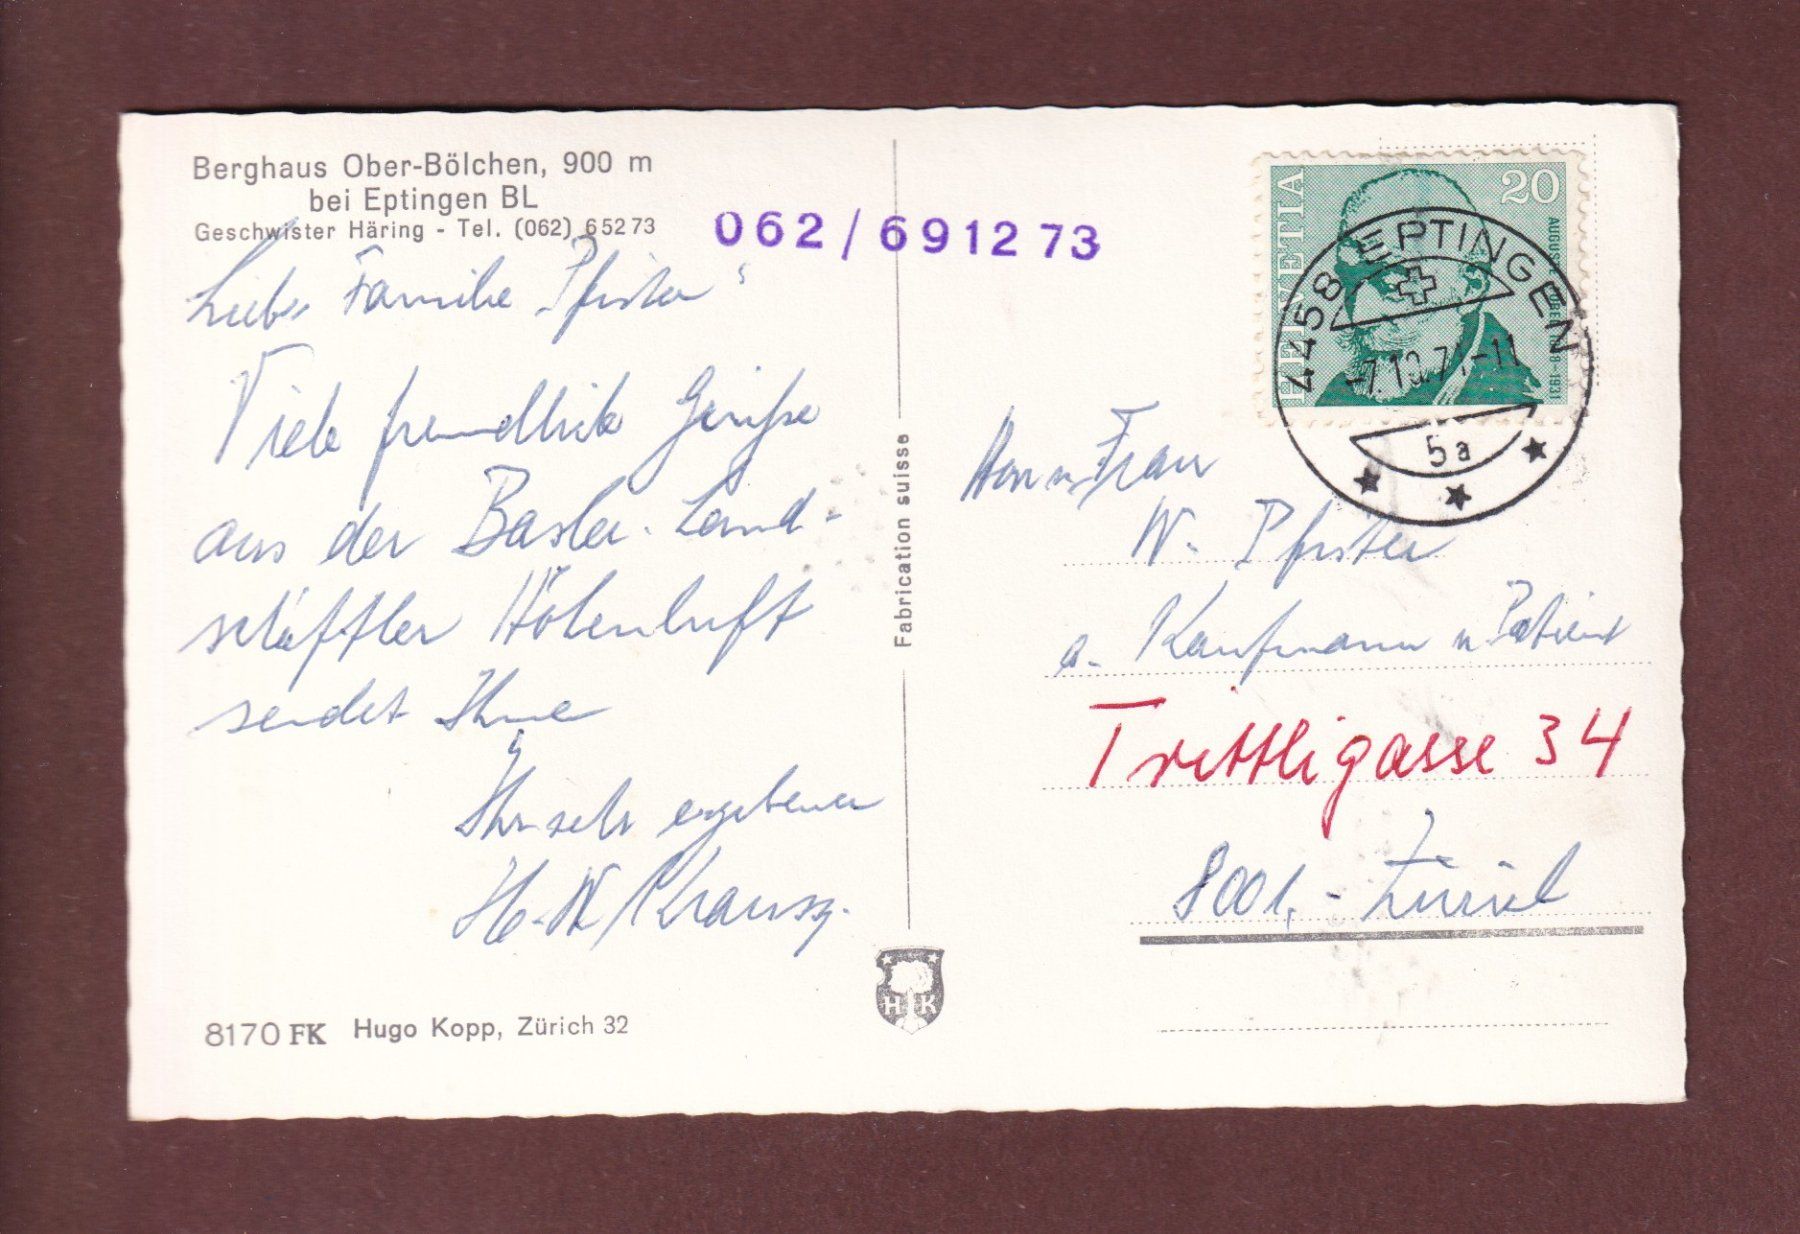 Berghaus Ober-Bölchen, 900 m
bei Eptingen BL
Geschwister Häring - Tel. (062) 6 52 73
062/691273
Liebe Familie Pfister
Viele freundliche Grüsse
aus der Basler-Land-
schäftler Höhenluft
sendet Ihne
Ihr sehr ergebener
H. W.
8170 FK Hugo Kopp, Zürich 32
Fabrication suisse
H K
HELVETIA
20
AUGUSTE FOREL 1848-1931
4458 EPTINGEN
-7.10.71-11
5a
Herr u. Frau
W. Pfister
a. Kaufmann u.
Trittligasse 34
8001,- Zürich